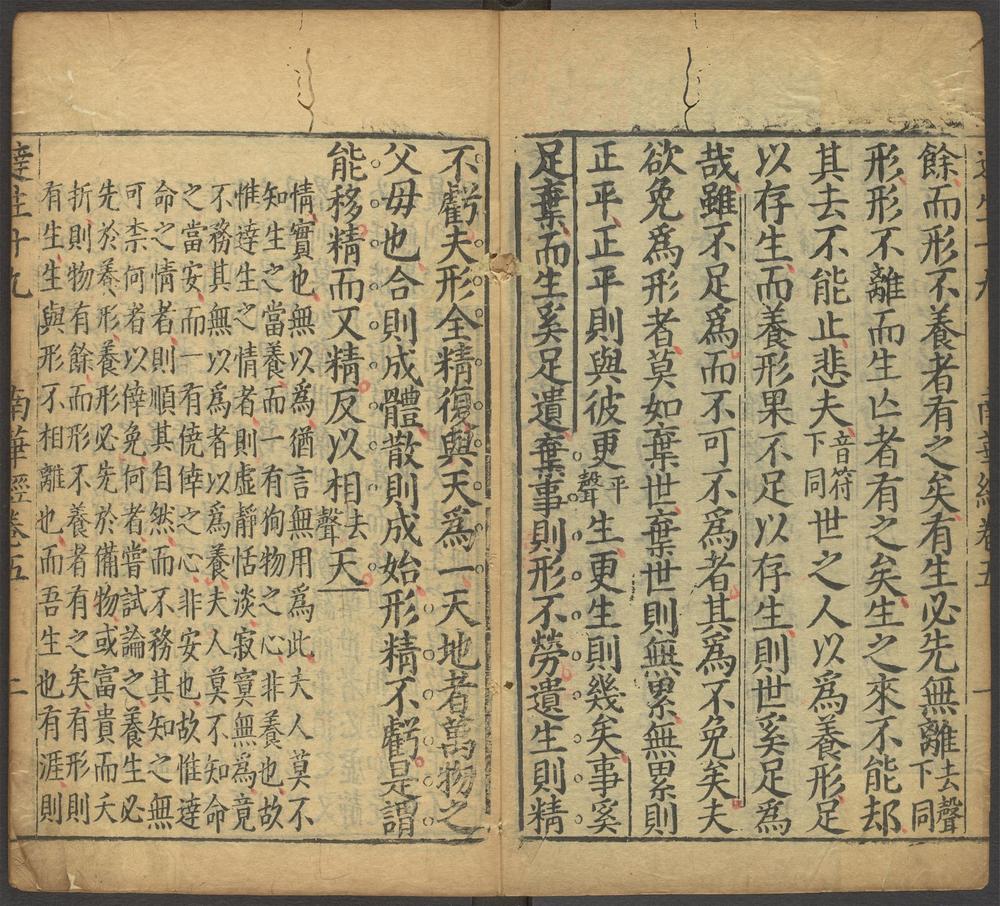 餘而形不養者有之矣有生必先無離去聲下同
形形不離而生亡者有之矣生之來不能却
其去不能止悲夫音符下同世之人以為養形足
以存生而養形果不足以存生則世奚足為
哉雖不足為而不可不為者其為不免矣夫
欲免為形者莫如棄世棄世則無累無累則
正平正平則與彼更平聲生更生則幾矣事奚
足棄而生奚足遺棄事則形不勞遺生則精
不虧夫形全精復與天為一天地者萬物之
父母也合則成體散則成始形精不虧是謂
能移精而又精反以相去聲天
情實也無以為猶言無用為此夫人莫不
知生之當養而一有狥物之心非養也故
惟達生之情者則虛靜恬淡寂寞無為竟
不務其無以為者以為養夫人莫不知命
之當安而一有僥倖之心非安也故惟達
命之情者則順其自然而不務其知之無
可柰何者以倖免何者嘗試論之養生必
先於養形養形必先於備物或富貴而夭
折則物有餘而形不養者有之矣有形則
有生生與形不相離也而吾生也有涯則
達生十九 南華經卷五 二